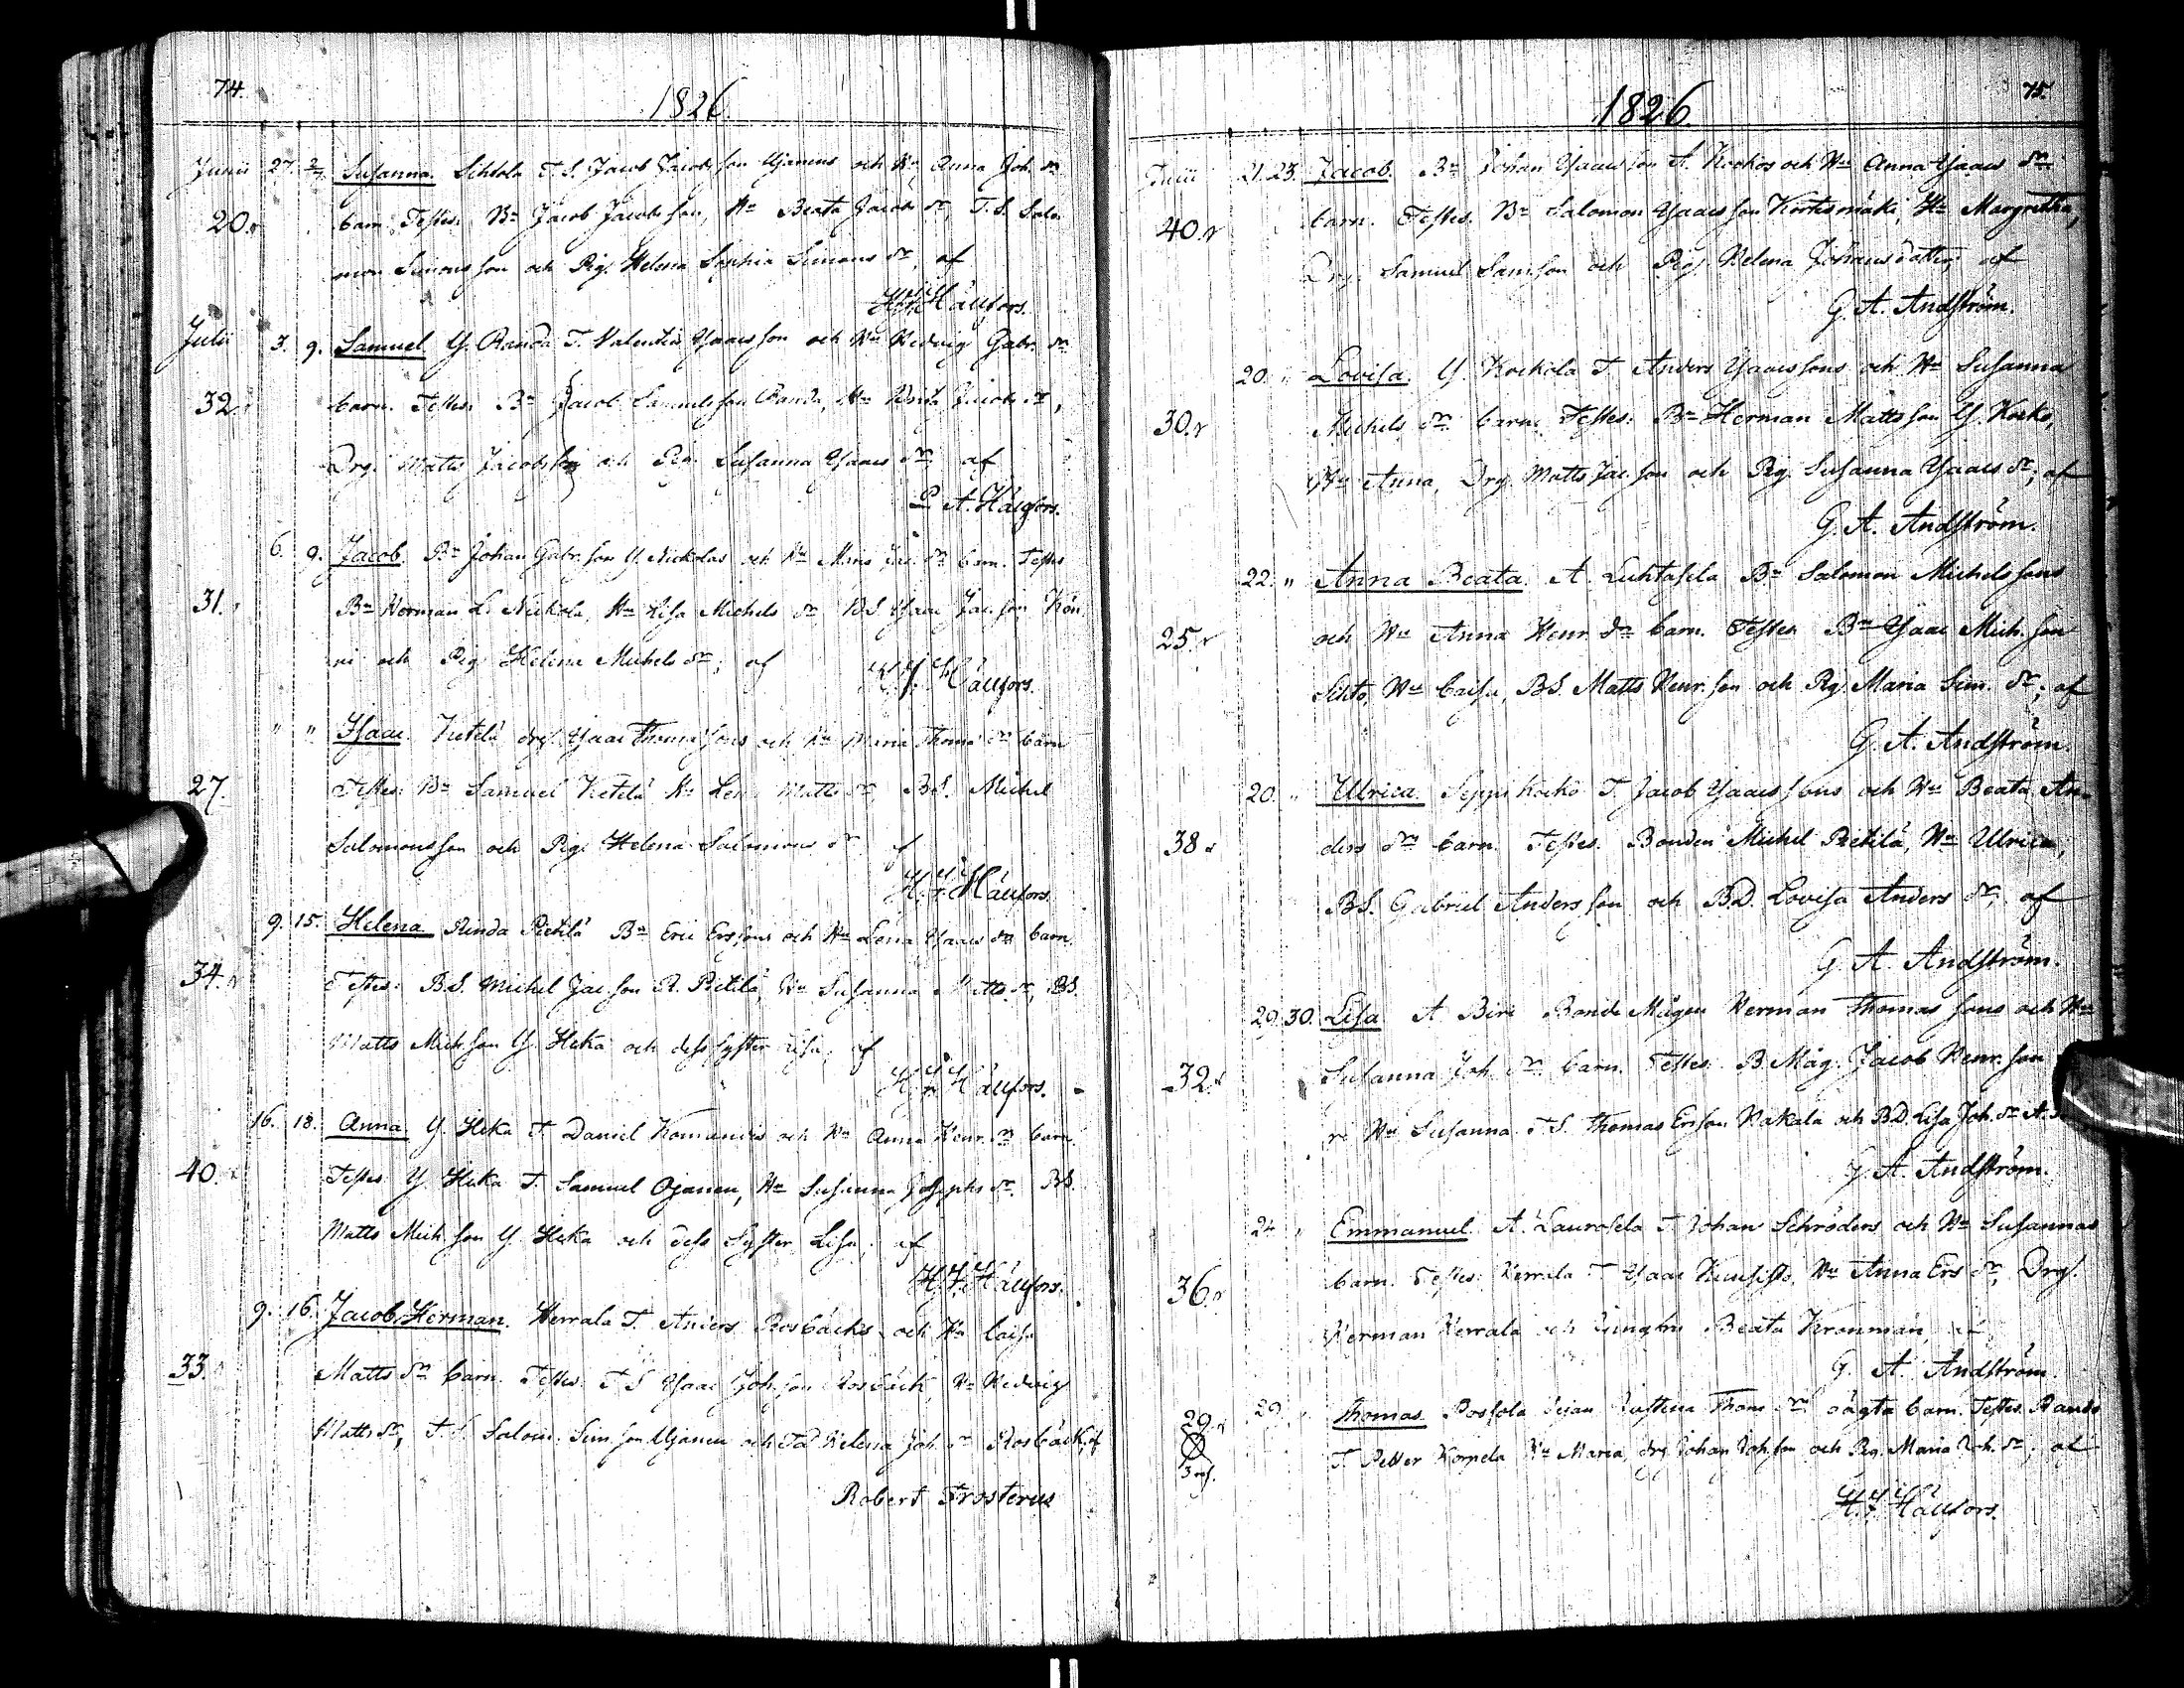 74.
1826.
Junii 27. 2/7. Susanna. Sihtola T. S. Jacob Jacobs son Ojanens och Hu Anna Joh. dr
20. barn. Testes: Bn Jacob Jacobs son, Hu Beata Jacobs dr, T. S. Salo
mon Simons son och Pig. Helena Sophia Simons dr, af
H. F. Hällfors.
Julii 3. 9. Samuel. Y. Randa T. Valentin Ysaacs son och Hu Hedvig Gabr. dr
32. barn. Testes: Bn Jacob Samuelsson Randa, Hu Jacobs dr,
Drg. Matts Jacobsson och Pig. Susanna Ysaacs dr, af
A. Hällfors.
6. 9. Jacob. Bn Johan Gabr. son Y. Nickolas och Hu Maria Jac. dr barn. Testes
31. Bn Herman L. Nickola, Hu Lisa Michels dr BS. Ysaac Jac. son Kön
ni och Pig. Helena Michels dr; af
H. F. Hällfors.
" " Ysaac. Vietilä drg. Ysaac Thomæ sons och Hu Maria Thomæ dr barn
27. Testes: Bn Samuel Vietilä Hu Lena Matts dr BS. Michel
Salomonsson och Pig. Helena Salomons dr af
H. F. Hällfors.
9. 15. Helena. Rinda Pietilä Bn Eric Ers sons och Hu Lena Ysaacs dr barn.
34. Testes: B.S. Michel Jac. son R. Pietilä, Hu Susanna Matts dr, BS.
Matts Mich. son Y. Heka och dess syster Lisa, af
H. F. Hällfors.
16. 18. Anna. Y. Heka T. Daniel Komanders och Hu Anna Henr. dr barn.
40. Testes Y. Heka T. Samuel Ojanen, Hu Susanna Josephs dr. BS.
Matts Mich. son Y. Heka och dess Syster Lisa, af
H. F. Hällfors.
9. 16. Jacob Herman. Herrala T. Anders Rosbäcks och Hu Caisa
33. Matts dr barn. Testes: T S Ysaac Joh. son Rosbäck, Hu Hedvig
Matts dr, T. S. Salom. Sim. son Ojanen och Td Helena Joh. dr Rosbäck, af
Robert Frosterus
75.
1826.
Julii 21. 23. Jacob. Bn Johan Ysaacs son A. Kockos och Hu Anna Ysaacs dr
40. barn. Testes. Bn Salomon Ysaacs son Kortesmäki, Hu Margretha,
Drg. Samuel Sam. son och Pig. Helena Johansdotter, af
G. A. Andström.
20. " Lovisa. Y. Kockola T. Anders Ysaacs sons och Hu Susanna
30. Michels dr. barn. Testes: Bn Herman Matts son Y. Kocko,
Hu Anna, Drg. Matts Jac. son och Pig. Susanna Ysaacs dr, af
G. A. Andström.
22. " Anna Beata. A. Luhtasela Bn Salomon Michels sons
25. och Hu Anna Henr. dr barn. Testes Bn Ysaac Mich. son
Sihto, Hu Caisa, BS. Matts Henr. son och Pig. Maria Sim. dr; af
G. A. Andström.
20. " Ulrica. Seppi Kocko T. Jacob Ysaacs sons och Hu Beata An-
38. ders dr barn. Testes. Bonden Michel Pietilä, Hu Ulrica,
BS. Gabriel Anders son och BD. Lovisa Anders dr, af
G. A. Andström.
29. 30. Lisa. A. Biri Bonde Mågen Herman Thomas sons och Hu
32. Susanna Joh. dr barn. Testes: B. Måg. Jacob Henr. son
ri Hu Susanna. T. S. Thomas Ers son Hakala och BD. Lisa Joh. dr A.
G. A. Andström.
24 " Emmanuel. A. Laurosela T. Johan Schröders och Hu Susannas
36. barn. Testes: Herrala T Ysaac Hu Anna Ers dr, Drg.
Herman Herrala och Jungfru Beata Kronman, af
G. A. Andström.
29. 29. " Thomas. Possola Pigan Justina Thom. dr oägta barn. Testes. Randa
T. Petter Korpela Hu Maria, drg. Johan Joh. son och Pig. Maria Joh. dr; af
H. F. Hällfors.